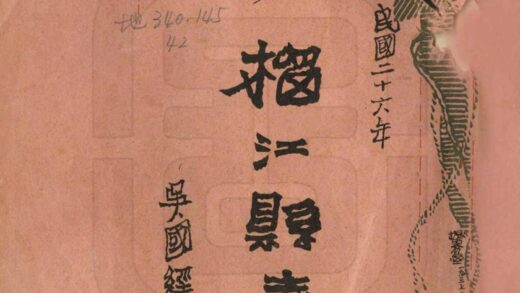 地 340.145
42
民國二十六年
榴江縣志
吳國經